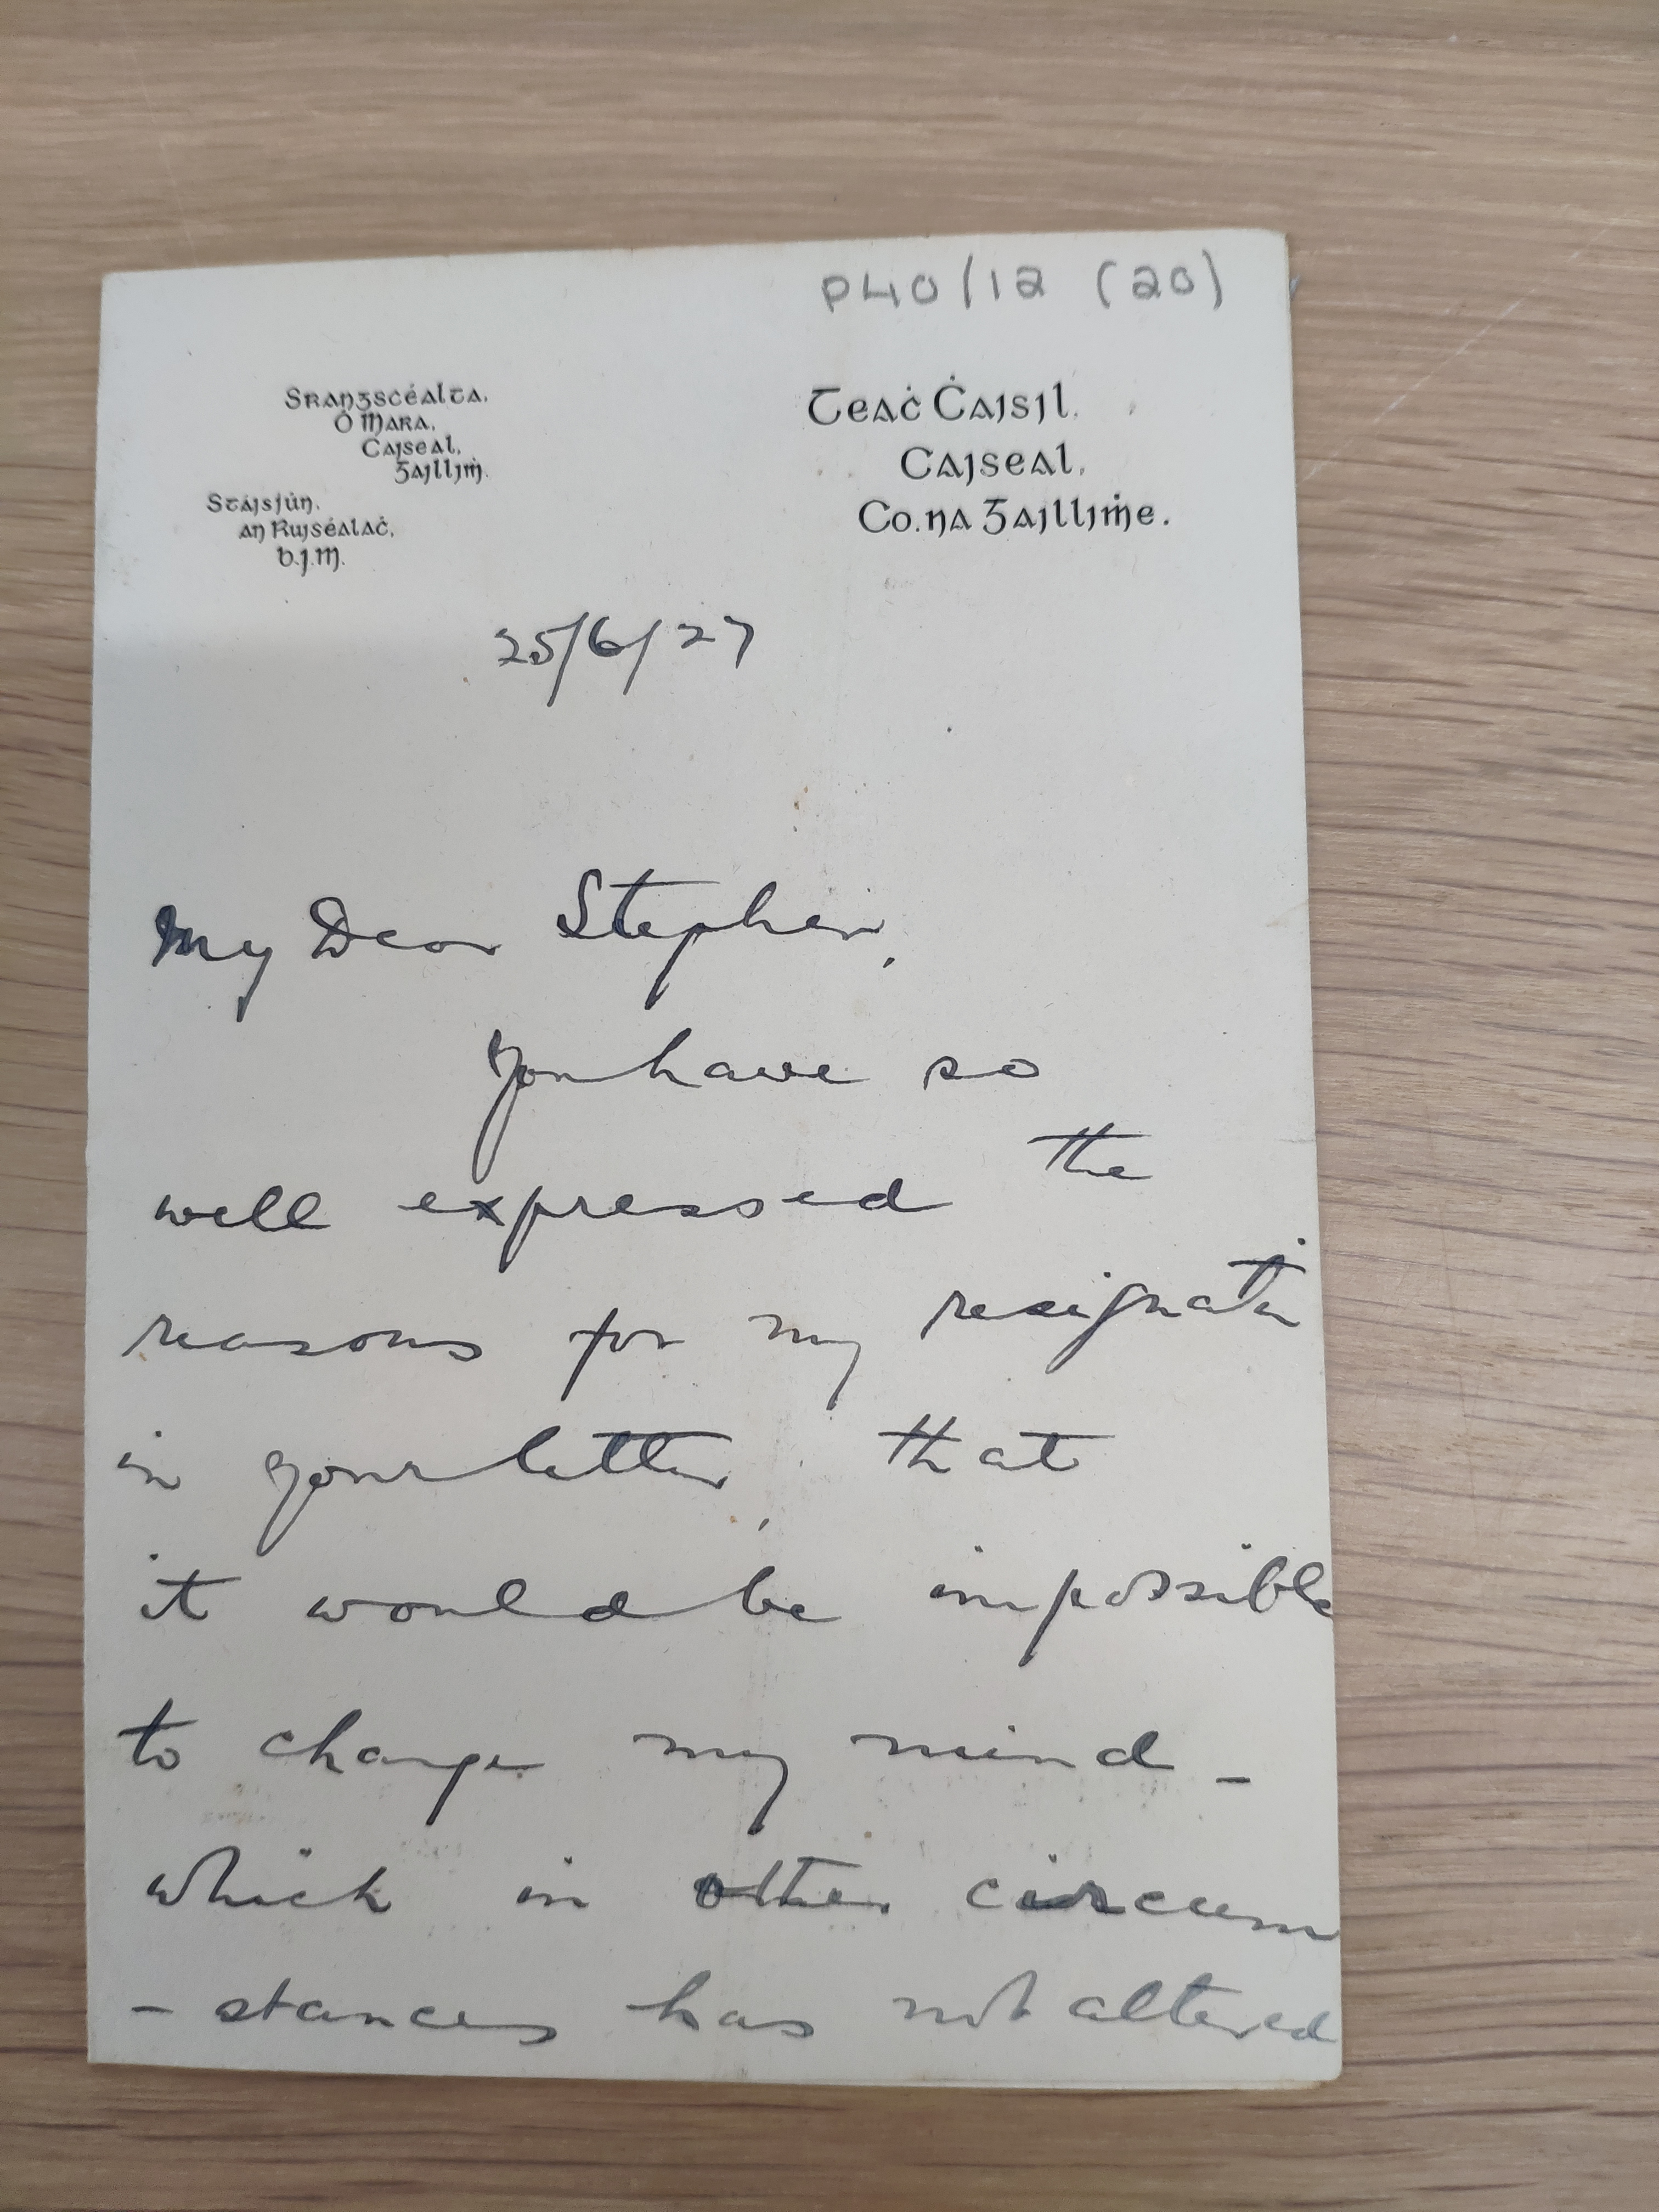 P40/12 (20)
Srangscéalta,
Ó Mara,
Caiseal,
Gailliṁ.
Stáisiún,
an Ruiséalaċ,
b.j.m.
Teaċ Ċaisil,
Caiseal,
Co. na Gailliṁe.
25/6/27
My Dear Stephen,
You have so
well expressed the
reasons for my resignatin
in your letter, that
it would be impossible
to change my mind –
which in other circum
– stances has not altered